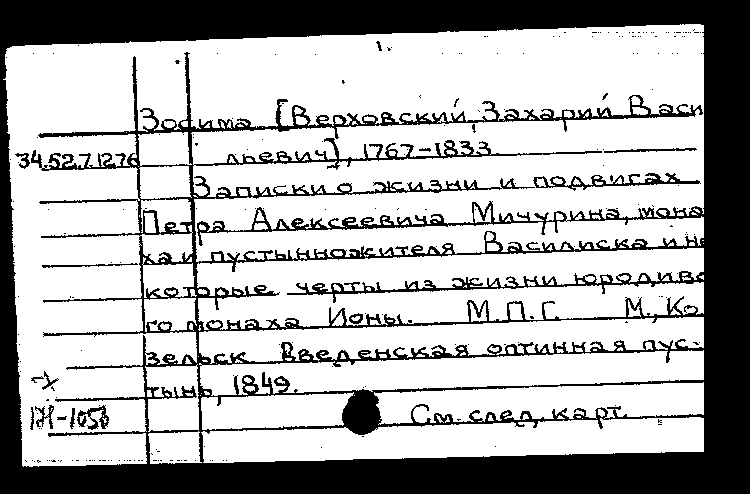 1.
Зосима [Верховский, Захарий Васи
34.52.7.1276 льевич], 1767-1833
Записки о жизни и подвигах
Петра Алексеевича Мичурина, мона
ха и пустынножителя Василиска и не
которые черты из жизни юродиво
го монаха Ионы. М.П.Г. М., Ко
зельск Введенская оптинная пус-
тынь, 1849.
См. след. карт.